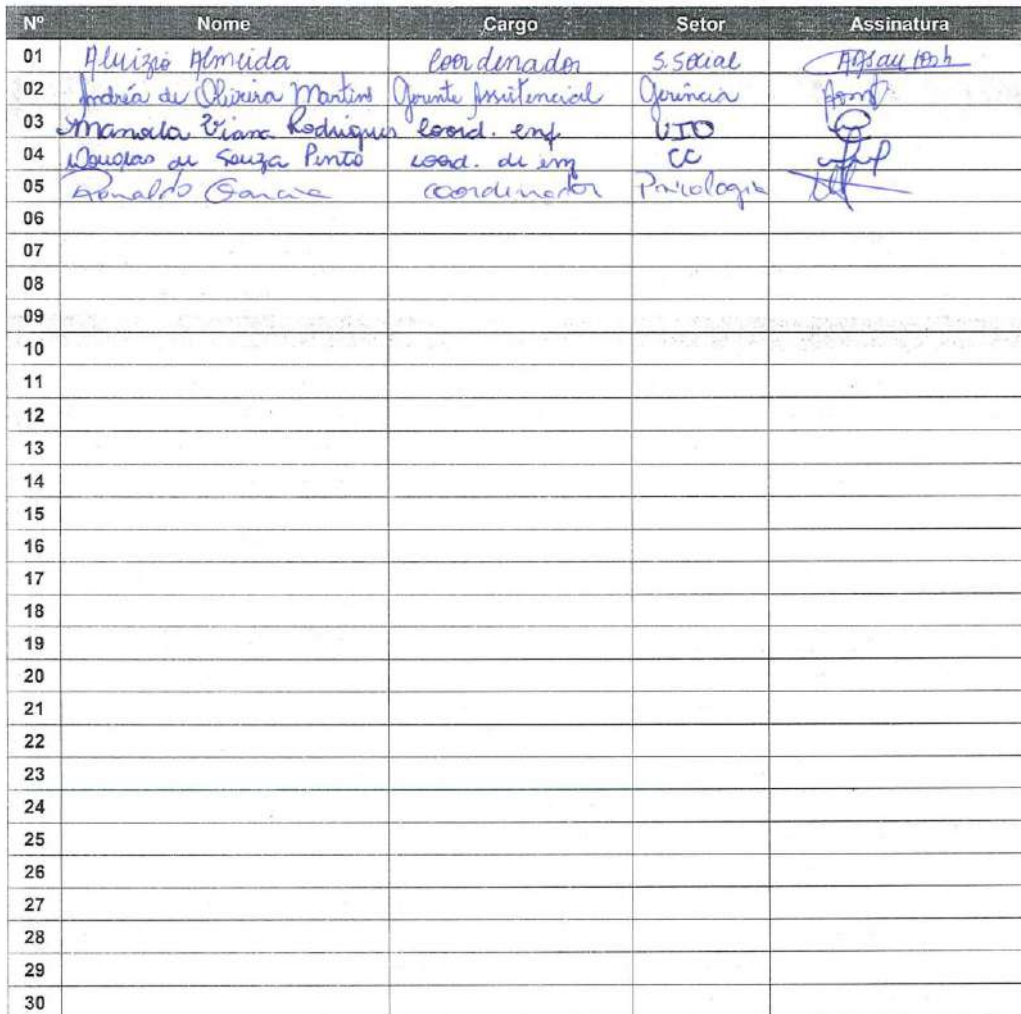 Nº Nome Cargo Setor Assinatura
01 Aluizio Almeida Coordenador S. Social
02 Andréa de Oliveira Martins Gerente Assistencial Gerência
03 Manoela Viana Rodrigues Coord. enf.
04 Douglas de Souza Pinto coord. de enf CC
05 Ronaldo Garcia coordenador Psicologia
06
07
08
09
10
11
12
13
14
15
16
17
18
19
20
21
22
23
24
25
26
27
28
29
30